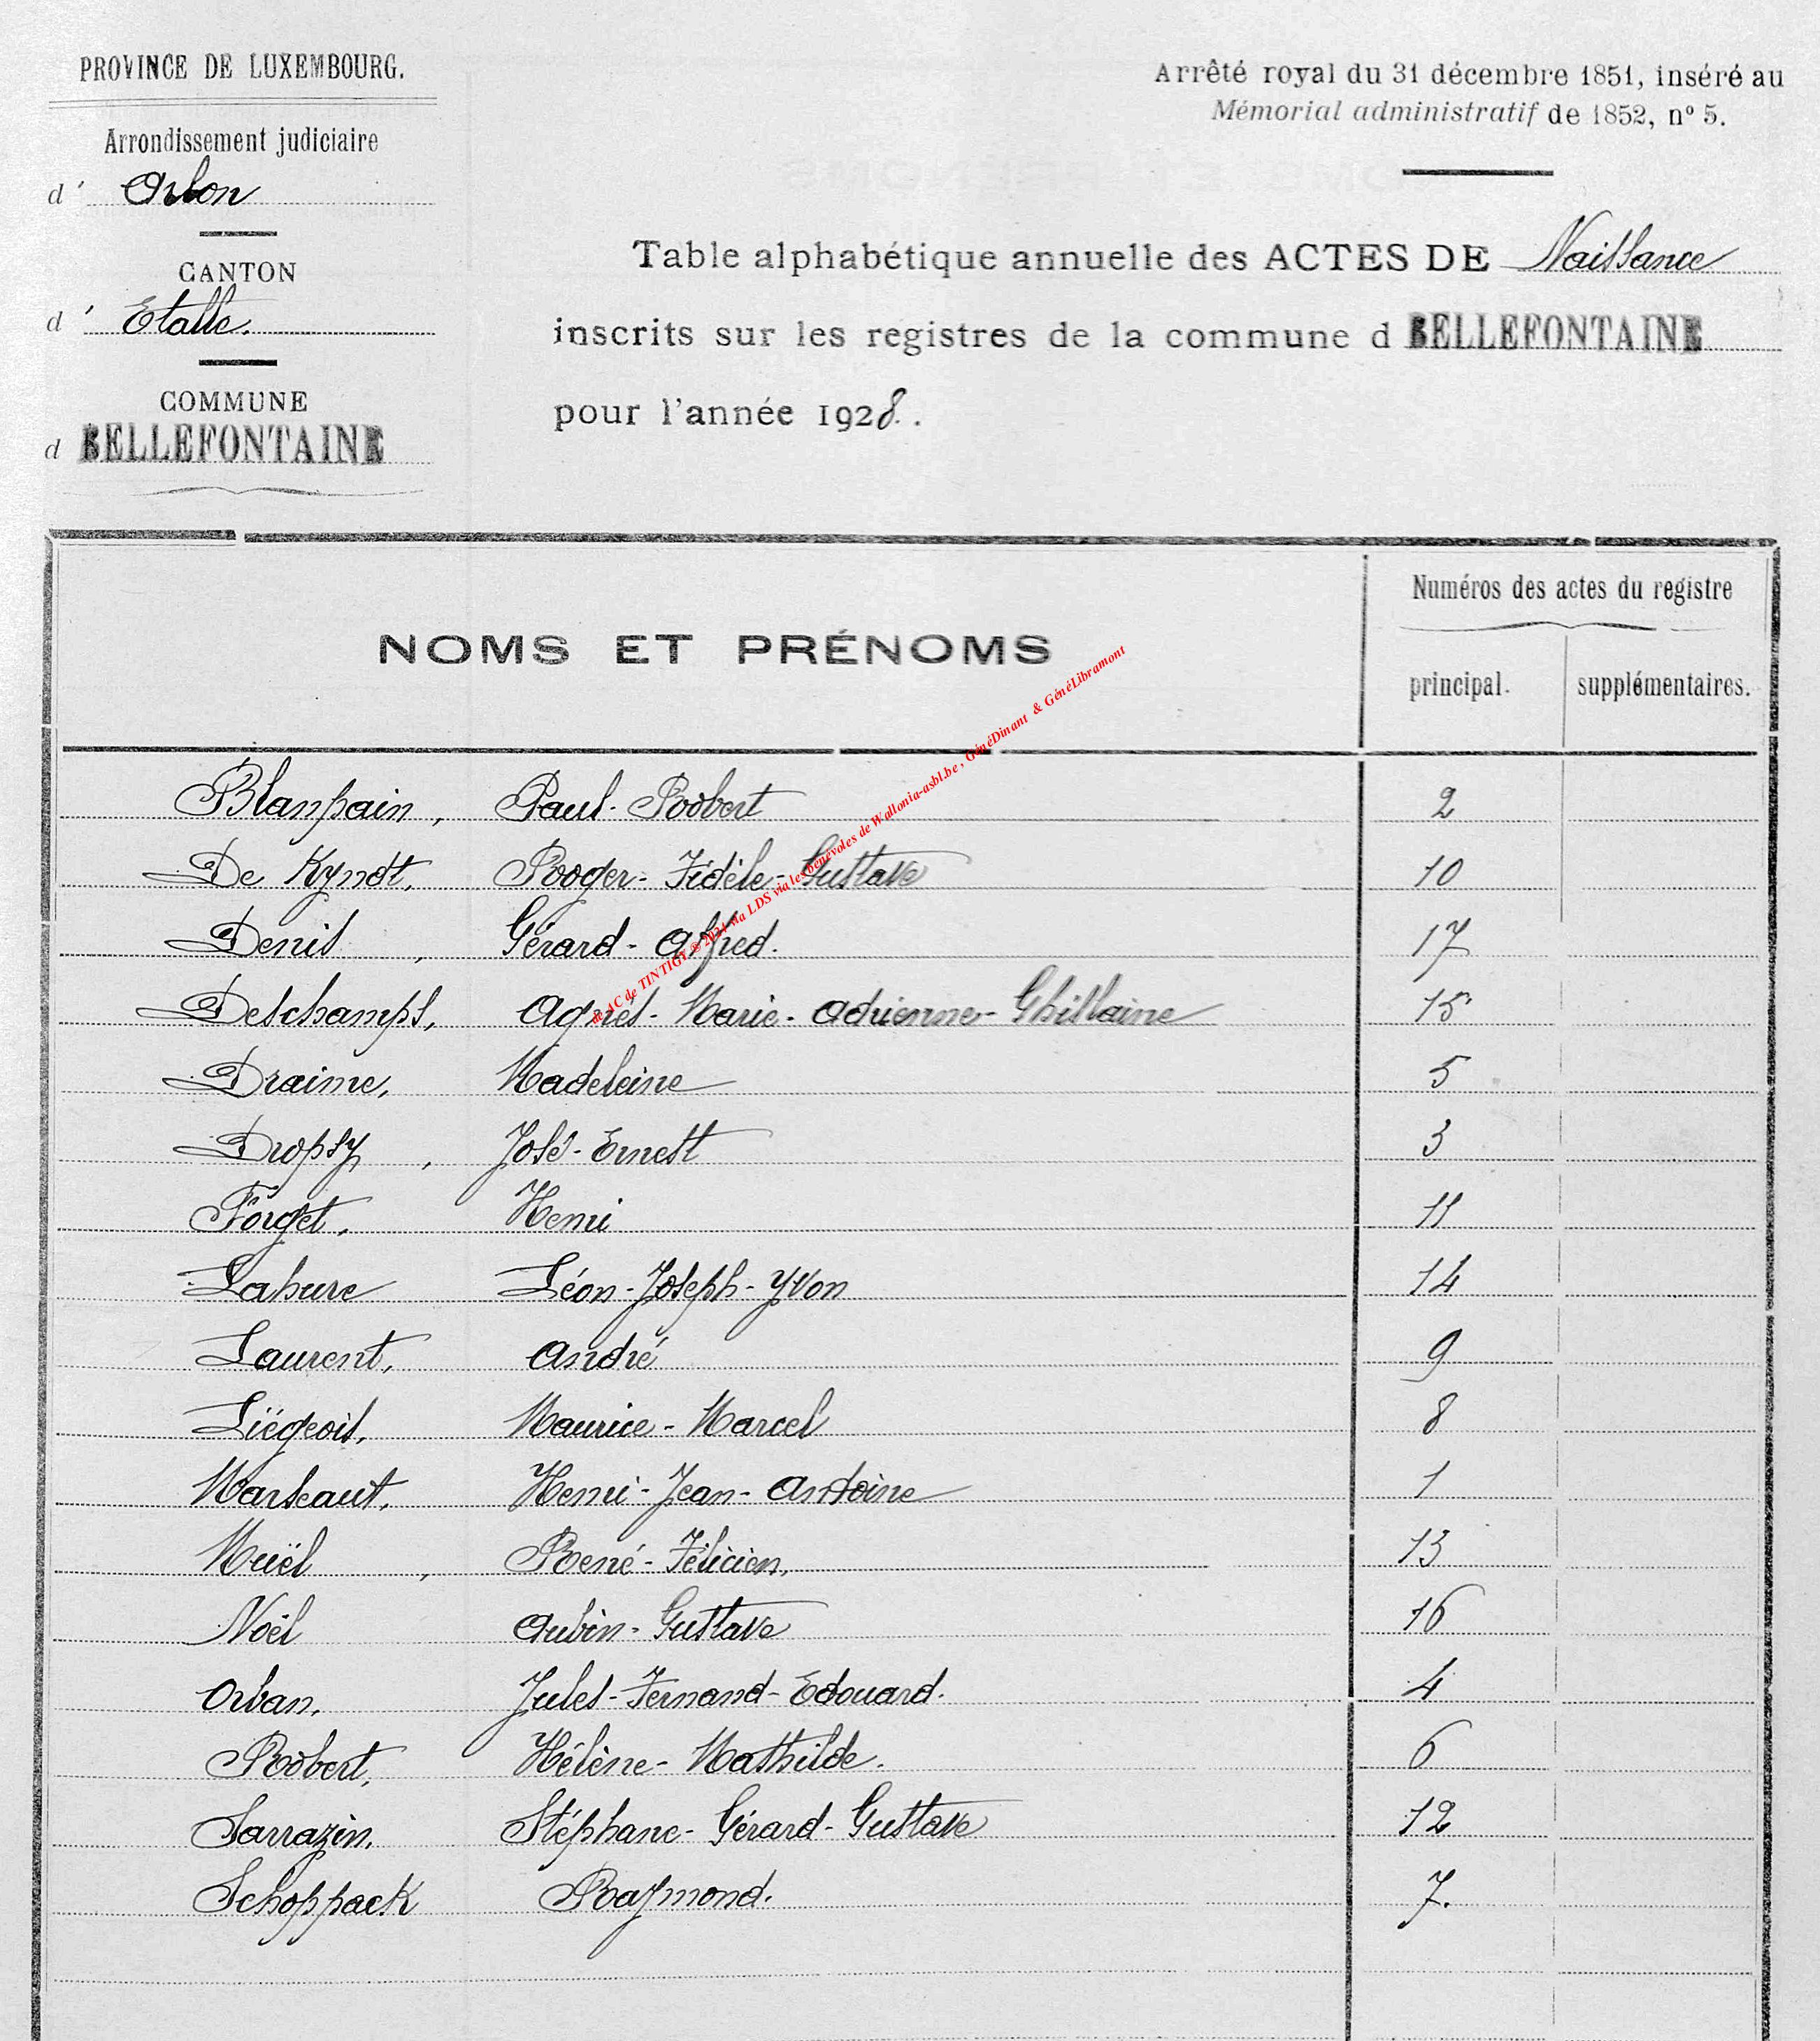 PROVINCE DE LUXEMBOURG.
Arrondissement judiciaire
d' Arlon
CANTON
d' Etalle.
COMMUNE
d BELLEFONTAINE
Arrêté royal du 31 décembre 1851, inséré au
Mémorial administratif de 1852, nº 5.
Table alphabétique annuelle des ACTES DE Naissance
inscrits sur les registres de la commune d BELLEFONTAINE
pour l'année 1928.
NOMS ET PRÉNOMS
Numéros des actes du registre
principal. supplémentaires.
Blanpain, Paul-Robert 2
De Kyndt, Roger-Fidèle-Gustave 10
Denis, Gérard-Alfred. 17
Deschamps, Agnès-Marie-Adrienne-Ghislaine 15
Draime, Madeleine 5
Dropsy, José-Ernest 3
Forget, Henri 11
Lahure Léon-Joseph-Yvon 14
Laurent, André 9
Liégeois, Maurice-Marcel 8
Marseaut, Henri-Jean-Antoine 1
Muël, René-Félicien, 13
Noël Aubin-Gustave 16
Orban, Jules-Fernand-Edouard. 4
Robert, Hélène-Mathilde. 6
Sarrazin, Stéphane-Gérard-Gustave 12
Schoppack Raymond. 7.
& AC de TINTIGY @ 2024 via LDS via les bénévoles de Wallonia-asbl.be, GénéDinant & GénéLibramont